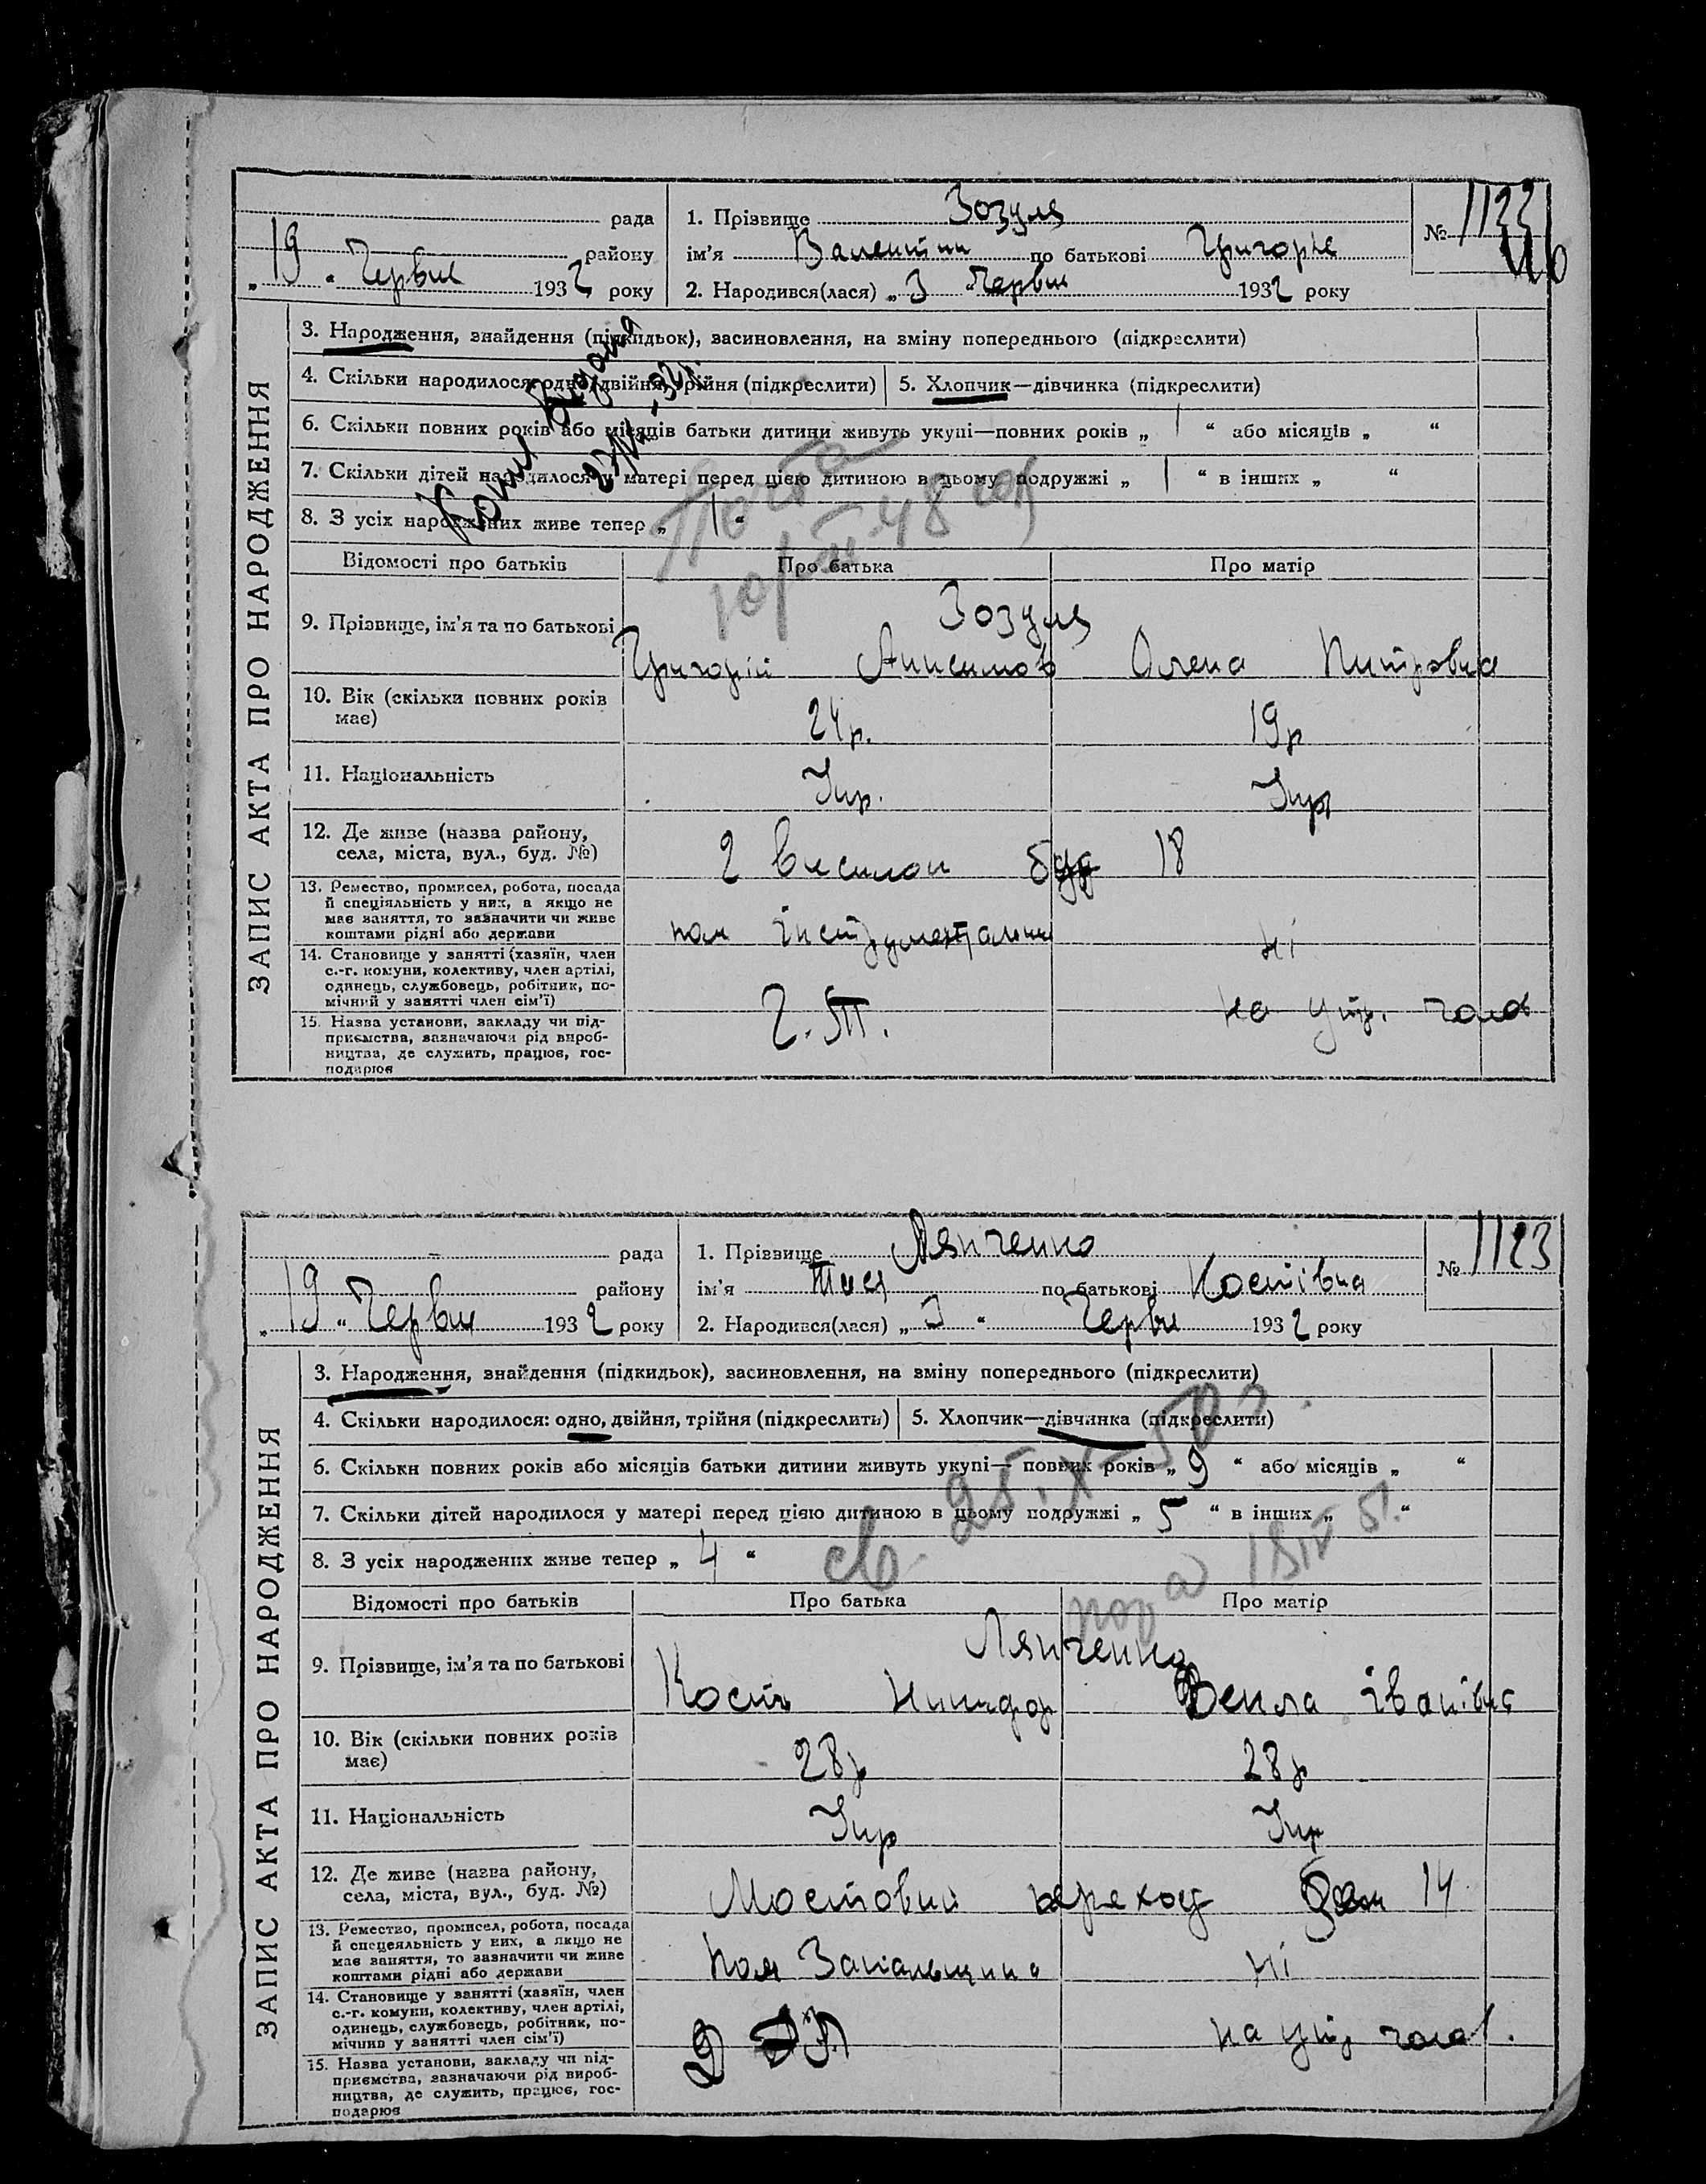 рада
1. Прізвище Зозуля
№ 1122
району
ім'я Валентин по батькові Григорів
„ 19 “ Червня 1932 року
2. Народився(лася) „ 3 “ Червня 1932 року
ЗАПИС АКТА ПРО НАРОДЖЕННЯ
3. Народження, знайдення (підкидьок), засиновлення, на зміну попереднього (підкреслити)
4. Скільки народилося: одно, двійня, трійня (підкреслити) 5. Хлопчик—дівчинка (підкреслити)
6. Скільки повних років або місяців батьки дитини живуть укупі—повних років „ 1 “ або місяців „ “
7. Скільки дітей народилося у матері перед цією дитиною в цьому подружжі „ 1 “ в інших „ “
8. З усіх народжених живе тепер „ 1 “
Відомості про батьків Про батька Про матір
Зозуля
9. Прізвище, ім'я та по батькові Григорій Анисимов Олена
10. Вік (скільки повних років має) 24р. 19р
11. Національність Укр. Укр
12. Де живе (назва району, села, міста, вул., буд. №) 2 18
13. Ремество, промисел, робота, посада
й спеціяльність у них, а якщо не
має заняття, то зазначити чи живе
коштами рідні або держави
пом інструментальника ні
14. Становище у занятті (хазяїн, член
с.-г. комуни, колективу, член артілі,
одинець, службовець, робітник, по-
мічний у занятті член сім'ї)
на утр. чолов
15. Назва установи, закладу чи під-
приємства, зазначаючи рід вироб-
ництва, де служить, працює, гос-
подарює
рада
1. Прізвище Ляпченко
№ 1123
району
ім'я Тися по батькові Костівна
„ 19 “ Червня 1932 року
2. Народився(лася) „ 3 “ Червня 1932 року
ЗАПИС АКТА ПРО НАРОДЖЕННЯ
3. Народження, знайдення (підкидьок), засиновлення, на зміну попереднього (підкреслити)
4. Скільки народилося: одно, двійня, трійня (підкреслити) 5. Хлопчик—дівчинка (підкреслити)
6. Скільки повних років або місяців батьки дитини живуть укупі— повних років „ 9 “ або місяців „ “
7. Скільки дітей народилося у матері перед цією дитиною в цьому подружжі „ 5 “ в інших „ “
8. З усіх народжених живе тепер „ 4 “
Відомості про батьків Про батька Про матір
Ляпченко
9. Прізвище, ім'я та по батькові Кость Никифор Векла Іванівна
10. Вік (скільки повних років має) 28р 28р
11. Національність Укр Укр
12. Де живе (назва району, села, міста, вул., буд. №) Мостовий переход 14
13. Ремество, промисел, робота, посада
й спецеяльність у них, а якщо не
має заняття, то зазначити чи живе
коштами рідні або держави
пом Запальщика ні
14. Становище у занятті (хазяїн, член
с.-г. комуни, колективу, член артілі,
одинець, службовець, робітник, по-
мічний у занятті член сім'ї)
на утр чолов.
15. Назва установи, закладу чи під-
приємства, зазначаючи рід вироб-
ництва, де служить, працює, гос-
подарює